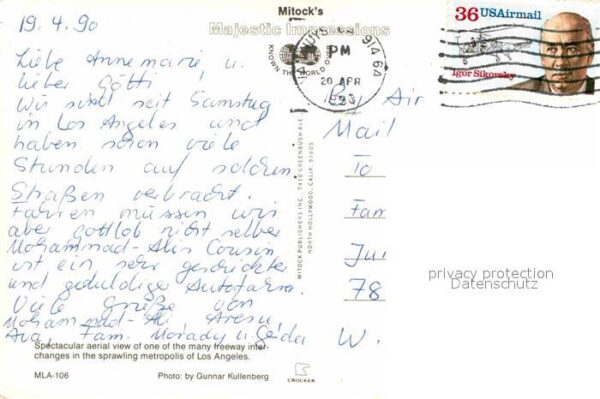 Mitock's
Majestic Impressions
19.4.90
Liebe Annemarie u.
lieber Götti !
Wir sind seit Samstag
in Los Angeles und
haben schon viele
Stunden auf solchen
Straßen verbracht.
Fahren müssen wir
aber gottlob nicht selber
Mohammad-Alis Cousin
ist ein sehr geschickter
und geduldiger Autofahrer.
Viele Grüße von
Mohammad-Ali
Fam. Morady u.
Spectacular aerial view of one of the many freeway inter-
changes in the sprawling metropolis of Los Angeles.
MLA-106 Photo: by Gunnar Kullenberg
MITOCK PUBLISHERS INC.
NORTH HOLLYWOOD, CALIF. 91605
CROCKER
PM
20 APR
KNOWN THE WORLD
36 USAirmail
Igor Sikorsky
By Air
Mail
To
Fam
78
W.
privacy protection
Datenschutz